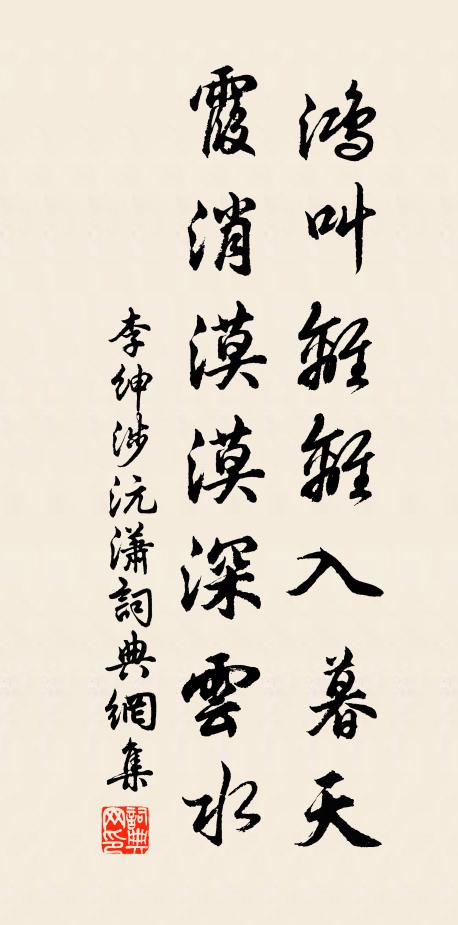 鴻叫離離入暮天
霞消漠漠深雲水
李紳涉沅瀟詞典網集
詞典
网印